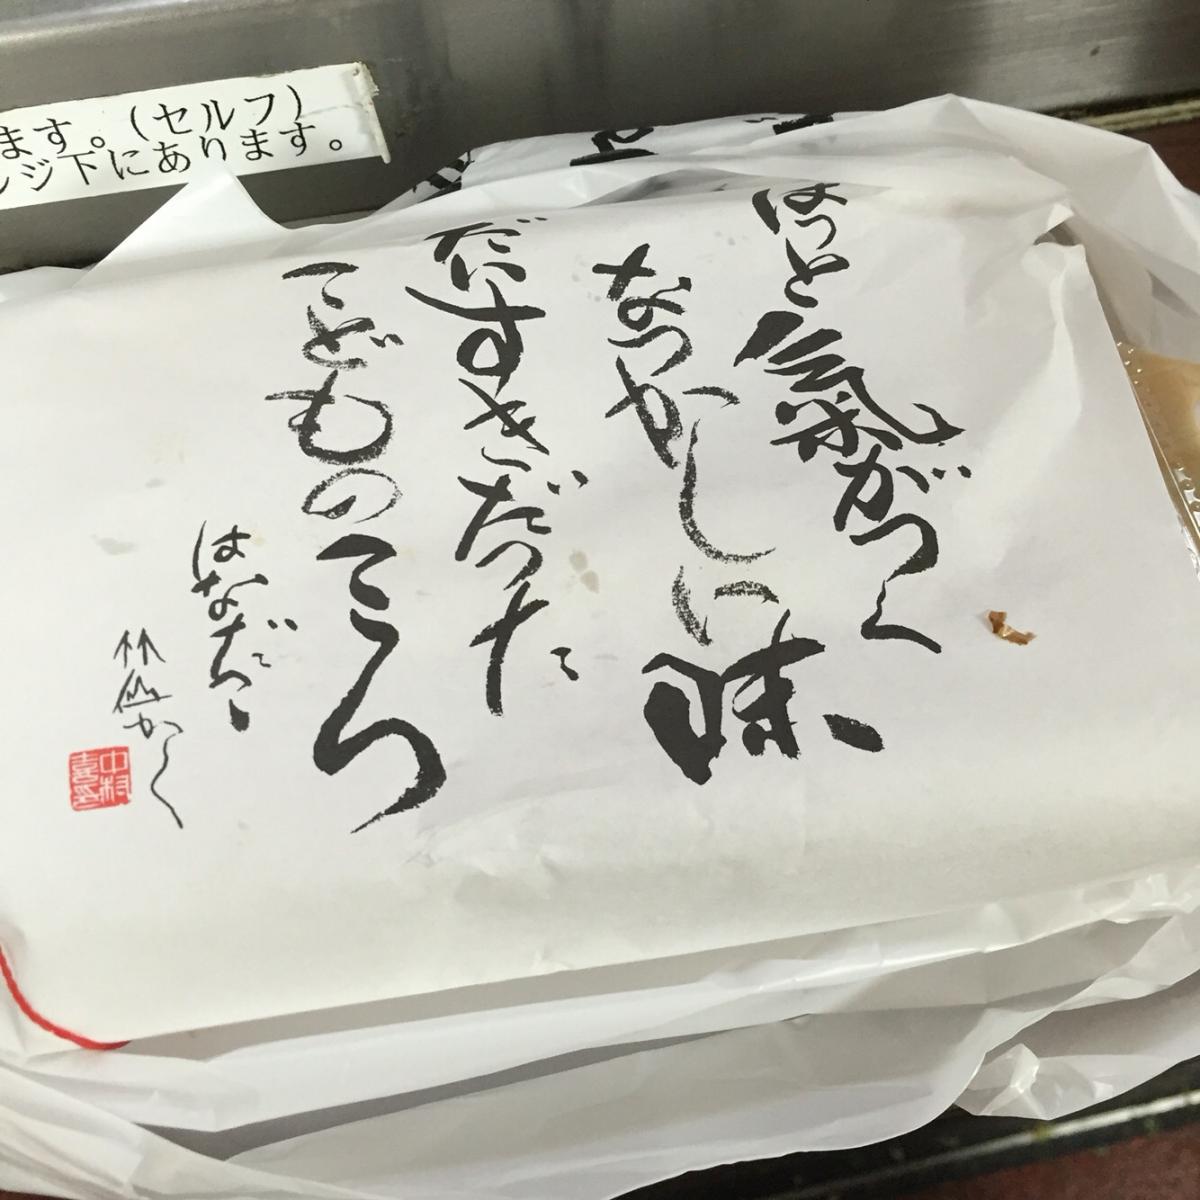 ます。(セルフ)
レンジ下にあります。
はっと氣がつく
なつかしい味
だいすきだった
こどものころ
はなだこ
竹仙かく